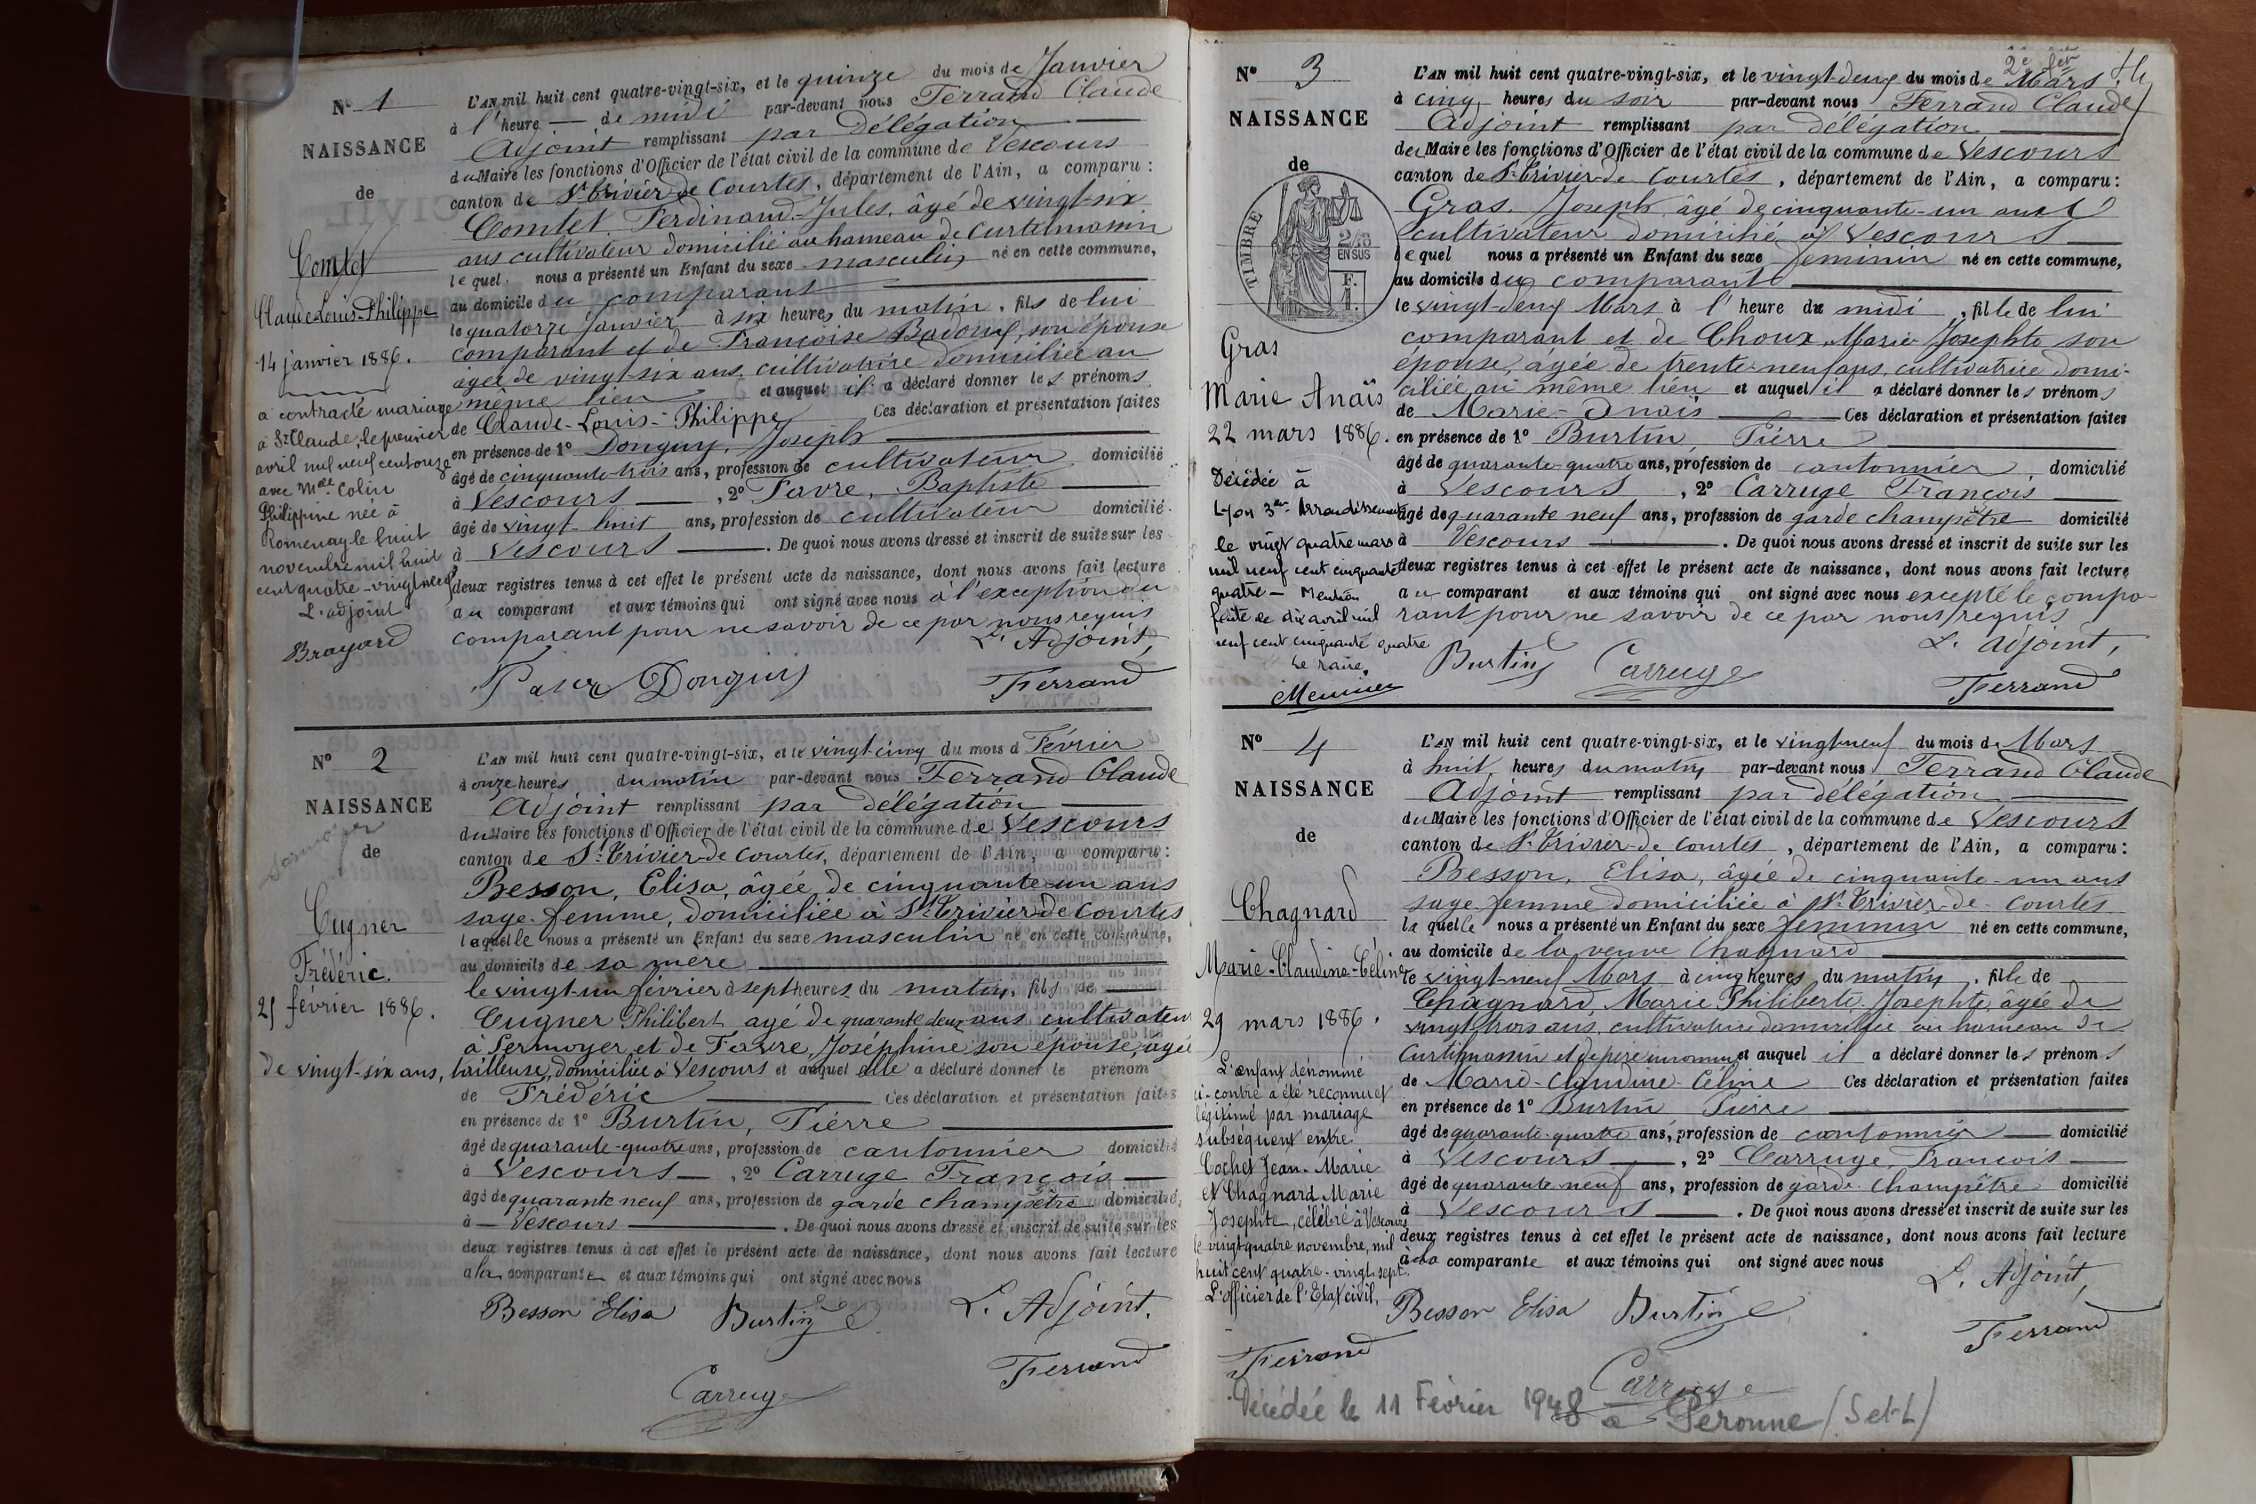 N° 1
NAISSANCE
de
Comtet
Claude-Louis-Philippe
14 janvier 1886.
a contracté mariage
à St Claude, le premier
avril mil neuf cent onze
avec Melle Colin
Philippine née à
Romenay le huit
novembre mil huit
cent quatre-vingt neuf
L'adjoint
Brayard
L'AN mil huit cent quatre-vingt-six, et le quinze du mois de Janvier
à l'heure de midi par-devant nous Ferrand Claude
Adjoint remplissant par Délégation
du Maire les fonctions d'Officier de l'état civil de la commune de Vescours
canton de St-Trivier de Courtes, département de l'Ain, a comparu :
Comtet Ferdinand-Jules, âgé de vingt-six
ans cultivateur domicilié au hameau de Curtilmassin
lequel nous a présenté un Enfant du sexe masculin né en cette commune,
au domicile du comparant
le quatorze janvier à six heures du matin, fils de lui
comparant et de Françoise Badoux, son épouse
âgée de vingt-six ans, cultivatrice domiciliée au
même lieu et auquel il a déclaré donner les prénoms
de Claude-Louis-Philippe Ces déclaration et présentation faites
en présence de 1° Donguy, Joseph
âgé de cinquante-trois ans, profession de cultivateur domicilié
à Vescours, 2° Favre, Baptiste
âgé de vingt-huit ans, profession de cultivateur domicilié
à Vescours. De quoi nous avons dressé et inscrit de suite sur les
deux registres tenus à cet effet le présent acte de naissance, dont nous avons fait lecture
au comparant et aux témoins qui ont signé avec nous à l'exception du
comparant pour ne savoir de ce par nous requis
L'Adjoint,
Donguy Ferrand
N° 2
NAISSANCE
de
Cugner
Frédéric.
21 février 1886.
L'AN mil huit cent quatre-vingt-six, et le vingt-cinq du mois d Février
à onze heures du matin par-devant nous Ferrand Claude
Adjoint remplissant par Délégation
du Maire les fonctions d'Officier de l'état civil de la commune de Vescours
canton de St-Trivier-de Courtes, département de l'Ain, a comparu :
Besson, Elisa, âgée de cinquante-un ans
sage-femme, domiciliée à St-Trivier-de Courtes
laquelle nous a présenté un Enfant du sexe masculin né en cette commune,
au domicile de sa mère
le vingt-un février à sept heures du matin, fils de
Cugner Philibert agé de quarante deux ans cultivateur
à Sermoyer et de Favre, Joséphine son épouse, agée
de vingt-six ans, tailleuse, domiciliée à Vescours et auquel elle a déclaré donner le prénom
de Frédéric Ces déclaration et présentation faites
en présence de 1° Burtin, Pierre
âgé de quarante-quatre ans, profession de cantonnier domicilié
à Vescours, 2° Carruge François
âgé de quarante neuf ans, profession de garde champêtre domicilié
à Vescours. De quoi nous avons dressé et inscrit de suite sur les
deux registres tenus à cet effet le présent acte de naissance, dont nous avons fait lecture
à la comparante et aux témoins qui ont signé avec nous
Besson Elisa Burtin L'Adjoint,
Ferrand
Carruge
2e fet
4
N° 3
NAISSANCE
de
TIMBRE
2/10
EN SUS
F.
1.
Gras
Marie Anaïs
22 mars 1886.
Décédée à
Lyon 3me Arrondissement
le vingt quatre mars
mil neuf cent cinquante
quatre — Mention
faite de dix avril mil
neuf cent cinquante quatre
Le maire,
Meunier
L'AN mil huit cent quatre-vingt-six, et le vingt-deux du mois de Mars
à cinq heures du soir par-devant nous Ferrand Claude
Adjoint remplissant par délégation
du Maire les fonctions d'Officier de l'état civil de la commune de Vescours
canton de St-Trivier-de Courtes, département de l'Ain, a comparu :
Gras Joseph âgé de cinquante-un ans
cultivateur domicilié à Vescours
lequel nous a présenté un Enfant du sexe féminin né en cette commune,
au domicile du comparant
le vingt-deux Mars à l'heure de midi, fille de lui
comparant et de Choux Marie Josephte son
épouse, âgée de trente-neuf ans, cultivatrice domi-
ciliée au même lieu et auquel il a déclaré donner les prénoms
de Marie-Anaïs Ces déclaration et présentation faites
en présence de 1° Burtin, Pierre
âgé de quarante-quatre ans, profession de cantonnier domicilié
à Vescours, 2° Carruge François
âgé de quarante neuf ans, profession de garde champêtre domicilié
à Vescours. De quoi nous avons dressé et inscrit de suite sur les
deux registres tenus à cet effet le présent acte de naissance, dont nous avons fait lecture
au comparant et aux témoins qui ont signé avec nous excepté le compa-
rant pour ne savoir de ce par nous requis
L'adjoint,
Burtin Carruge
Ferrand
N° 4
NAISSANCE
de
Chagnard
Marie-Claudine-Céline
29 mars 1886.
L'enfant dénommé
ci-contre a été reconnu et
légitimé par mariage
subséquent entre
Cochet Jean-Marie
et Chagnard Marie
Josephte, célébré à Vescours
le vingt-quatre novembre, mil
huit cent quatre-vingt sept.
L'officier de l'Etat civil,
Ferrand
L'AN mil huit cent quatre-vingt-six, et le vingt-neuf du mois de Mars
à huit heures du matin par-devant nous Ferrand Claude
Adjoint remplissant par délégation
du Maire les fonctions d'Officier de l'état civil de la commune de Vescours
canton de St-Trivier-de Courtes, département de l'Ain, a comparu :
Besson, Elisa, âgée de cinquante-un ans
sage-femme domiciliée à St-Trivier-de-Courtes
laquelle nous a présenté un Enfant du sexe féminin né en cette commune,
au domicile de la veuve Chagnard
le vingt-neuf Mars à cinq heures du matin, fille de
Chagnard, Marie Philiberte Josephte, âgée de
vingt-trois ans, cultivatrice domiciliée au hameau de
Curtilmassin et de père inconnu et auquel il a déclaré donner les prénoms
de Marie-Claudine-Céline Ces déclaration et présentation faites
en présence de 1° Burtin Pierre
âgé de quarante-quatre ans, profession de cantonnier domicilié
à Vescours, 2° Carruge François
âgé de quarante-neuf ans, profession de garde champêtre domicilié
à Vescours. De quoi nous avons dressé et inscrit de suite sur les
deux registres tenus à cet effet le présent acte de naissance, dont nous avons fait lecture
à la comparante et aux témoins qui ont signé avec nous
L'Adjoint,
Besson Elisa Burtin
Ferrand
Carruge
Décédée le 11 Février 1948 à Péronne (S et L)